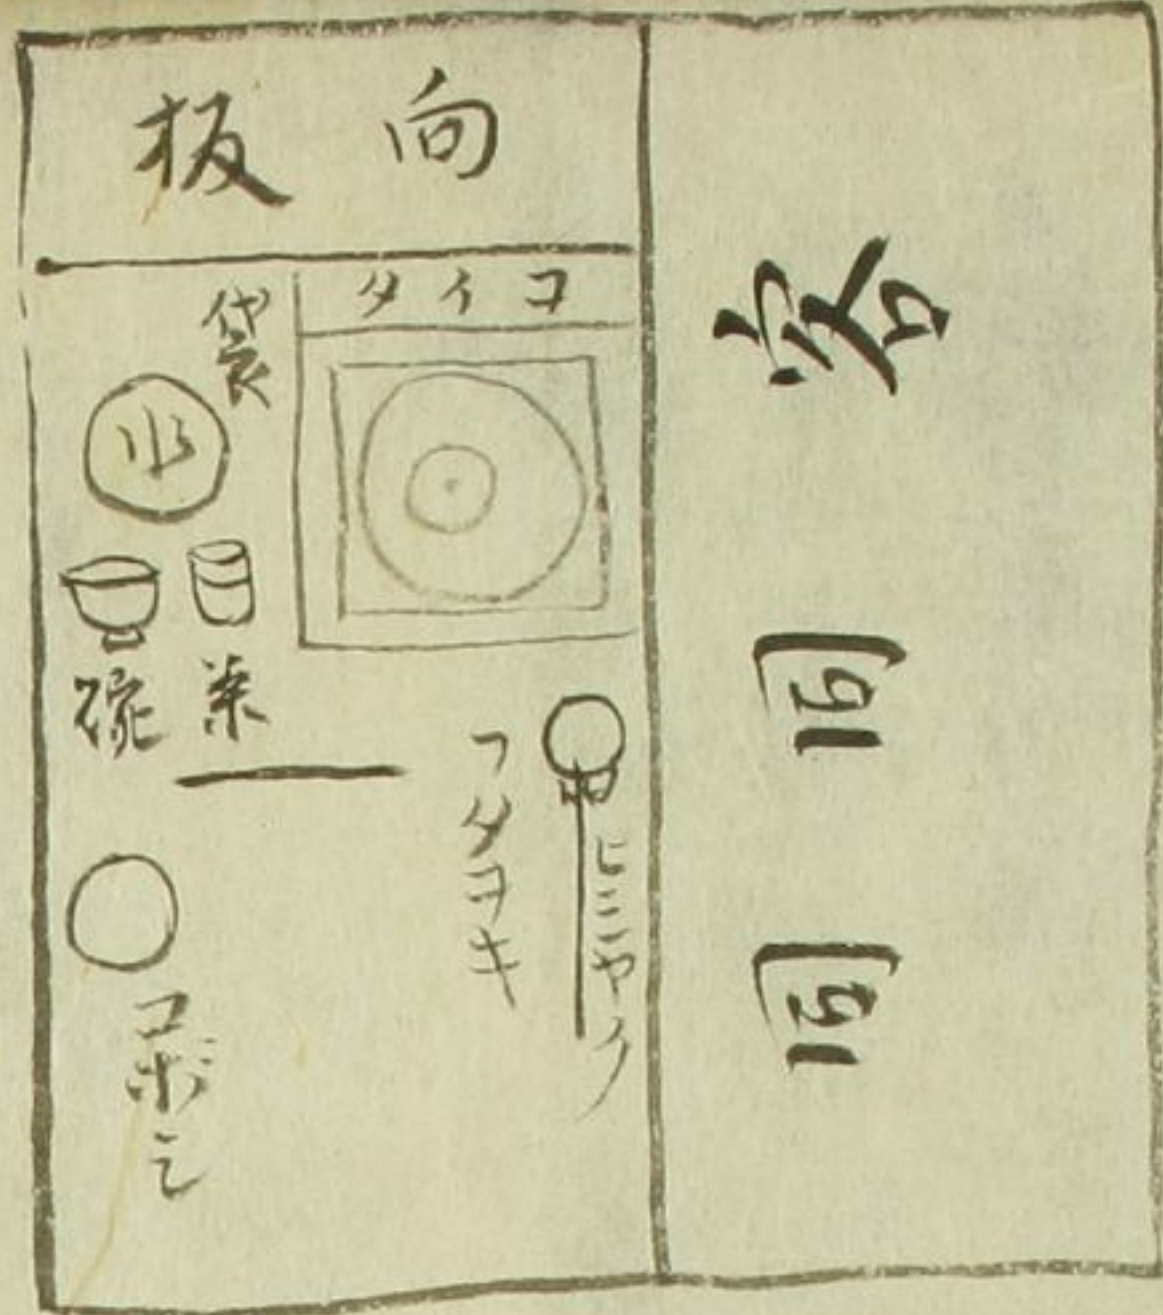 客
同
同
向板
コイタ
袋
水
茶碗
ヒシヤク
フタヲキ
コボシ